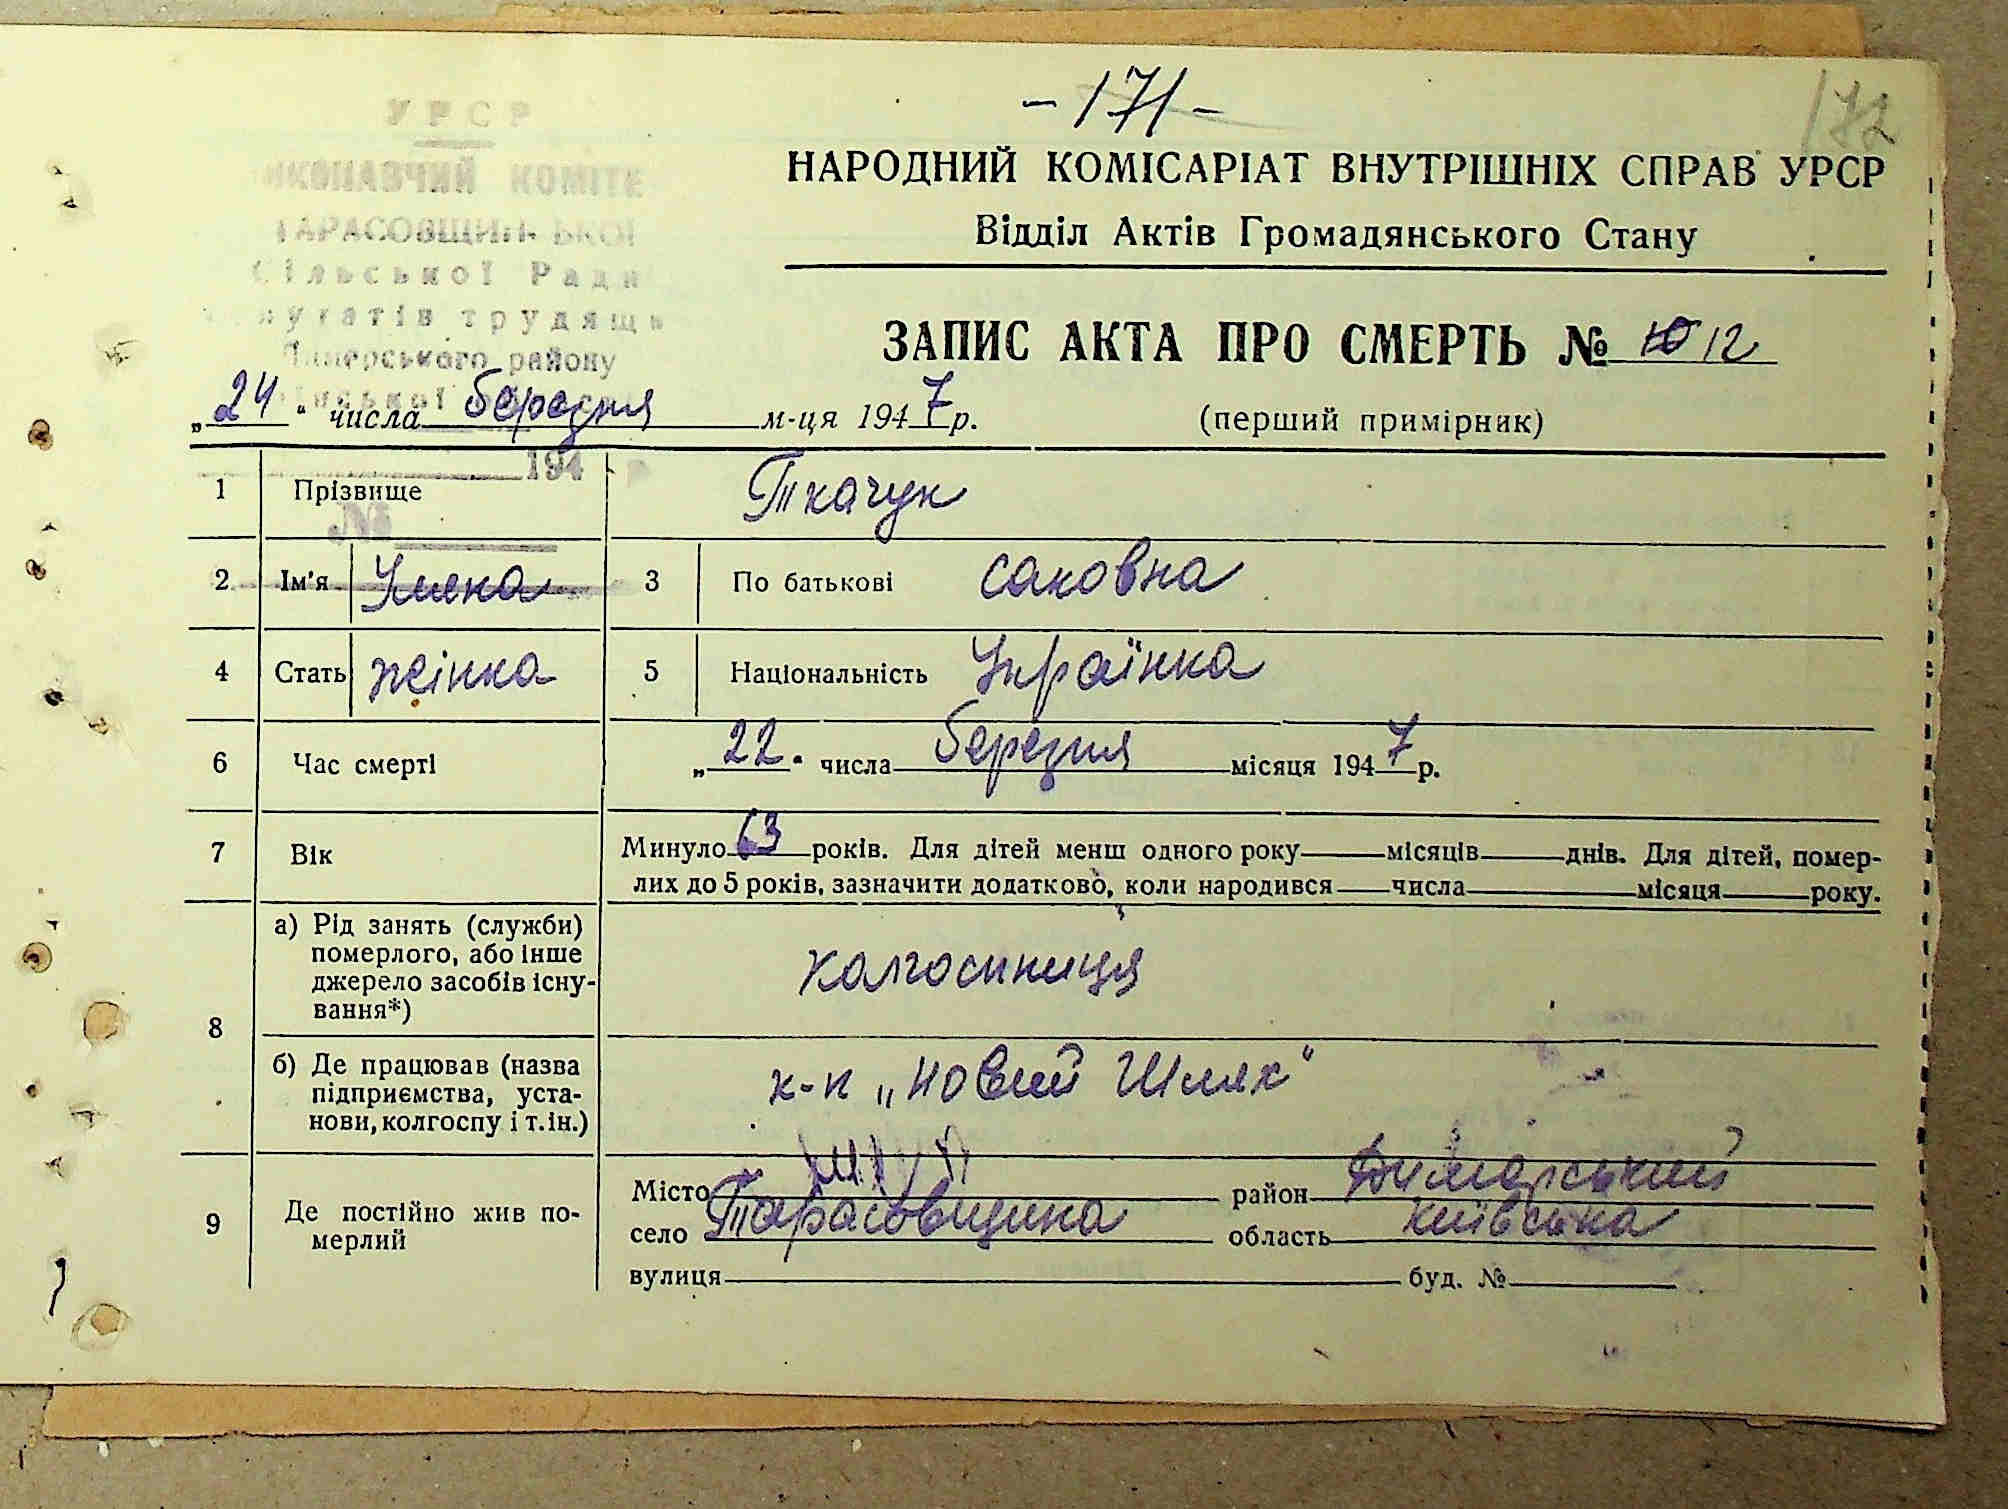 -171-
172
УРСР
ИКОНАВЧИЙ КОМІТЕ
ТАРАСОВЩИНСЬКОЇ
Сільської Ради
путатів трудящи
Димерського району
194 р
№
НАРОДНИЙ КОМІСАРІАТ ВНУТРІШНІХ СПРАВ УРСР
Відділ Актів Громадянського Стану
ЗАПИС АКТА ПРО СМЕРТЬ № 12
„24“ числа березня м-ця 1947 р.
(перший примірник)
1 Прізвище Ткачук
2 Ім'я Уляна 3 По батькові саковна
4 Стать жінка 5 Національність Українка
6 Час смерті „22“ числа березня місяця 1947 р.
7 Вік Минуло 63 років. Для дітей менш одного року місяців днів. Для дітей, помер-
лих до 5 років, зазначити додатково, коли народився числа місяця року.
8 а) Рід занять (служби)
померлого, або інше
джерело засобів існу-
вання*)
колгоспниця
б) Де працював (назва
підприємства, уста-
нови, колгоспу і т. ін.)
к-п „Новий Шлях“
9 Де постійно жив по-
мерлий
Місто район Димерський
село Тарасовщина область Київська
вулиця буд. №